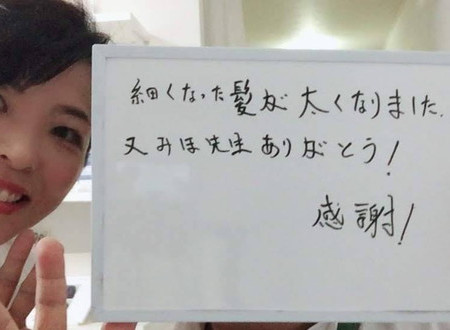 細くなった髪が太くなりました.
又みほ先生ありがとう!
感謝!